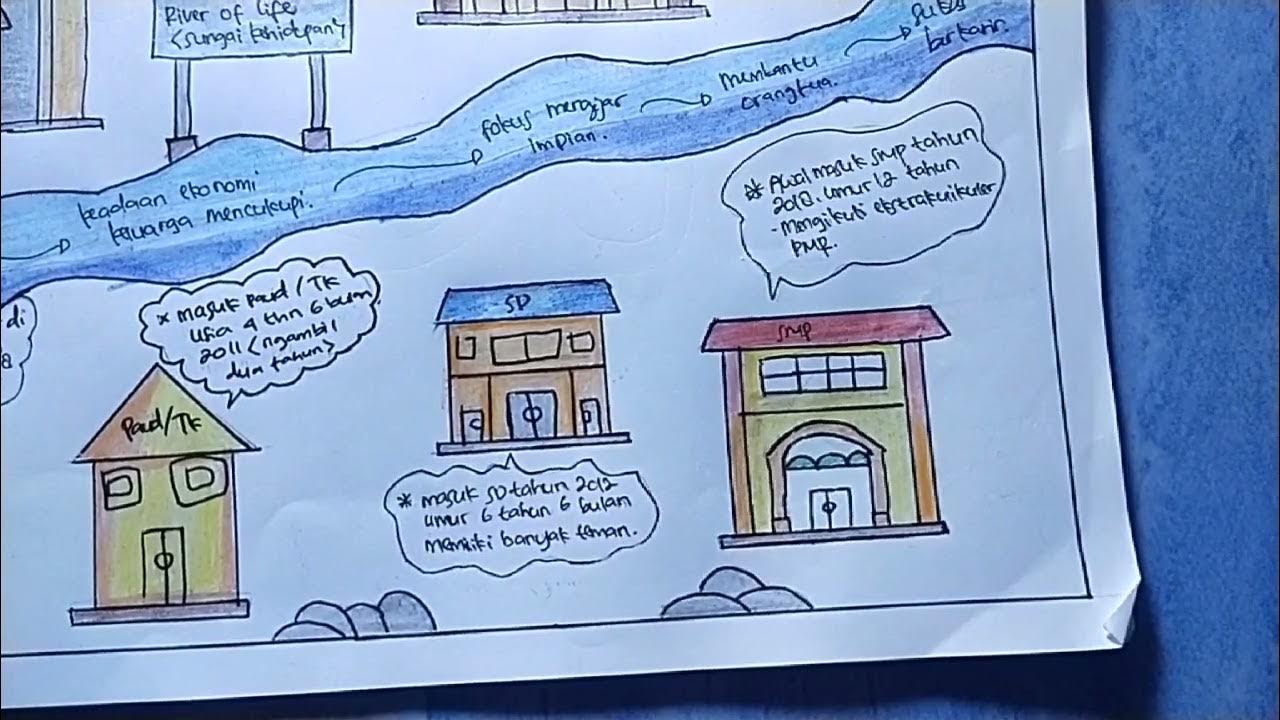 River of Life
(sungai kehidupan)
keadaan ekonomi
keluarga mencukupi.
fokus mengejar
impian.
membantu
orangtua.
sukses
berkarir.
di
* Awal masuk SMP tahun
2018. umur 12 tahun
- mengikuti ekstrakurikuler
PMR.
* masuk Paud/TK
usia 4 thn 6 bulan
2011 (ngambil
dua tahun)
SD
SMP
Paud/TK
* masuk SD tahun 2012
umur 6 tahun 6 bulan
memiliki banyak teman.